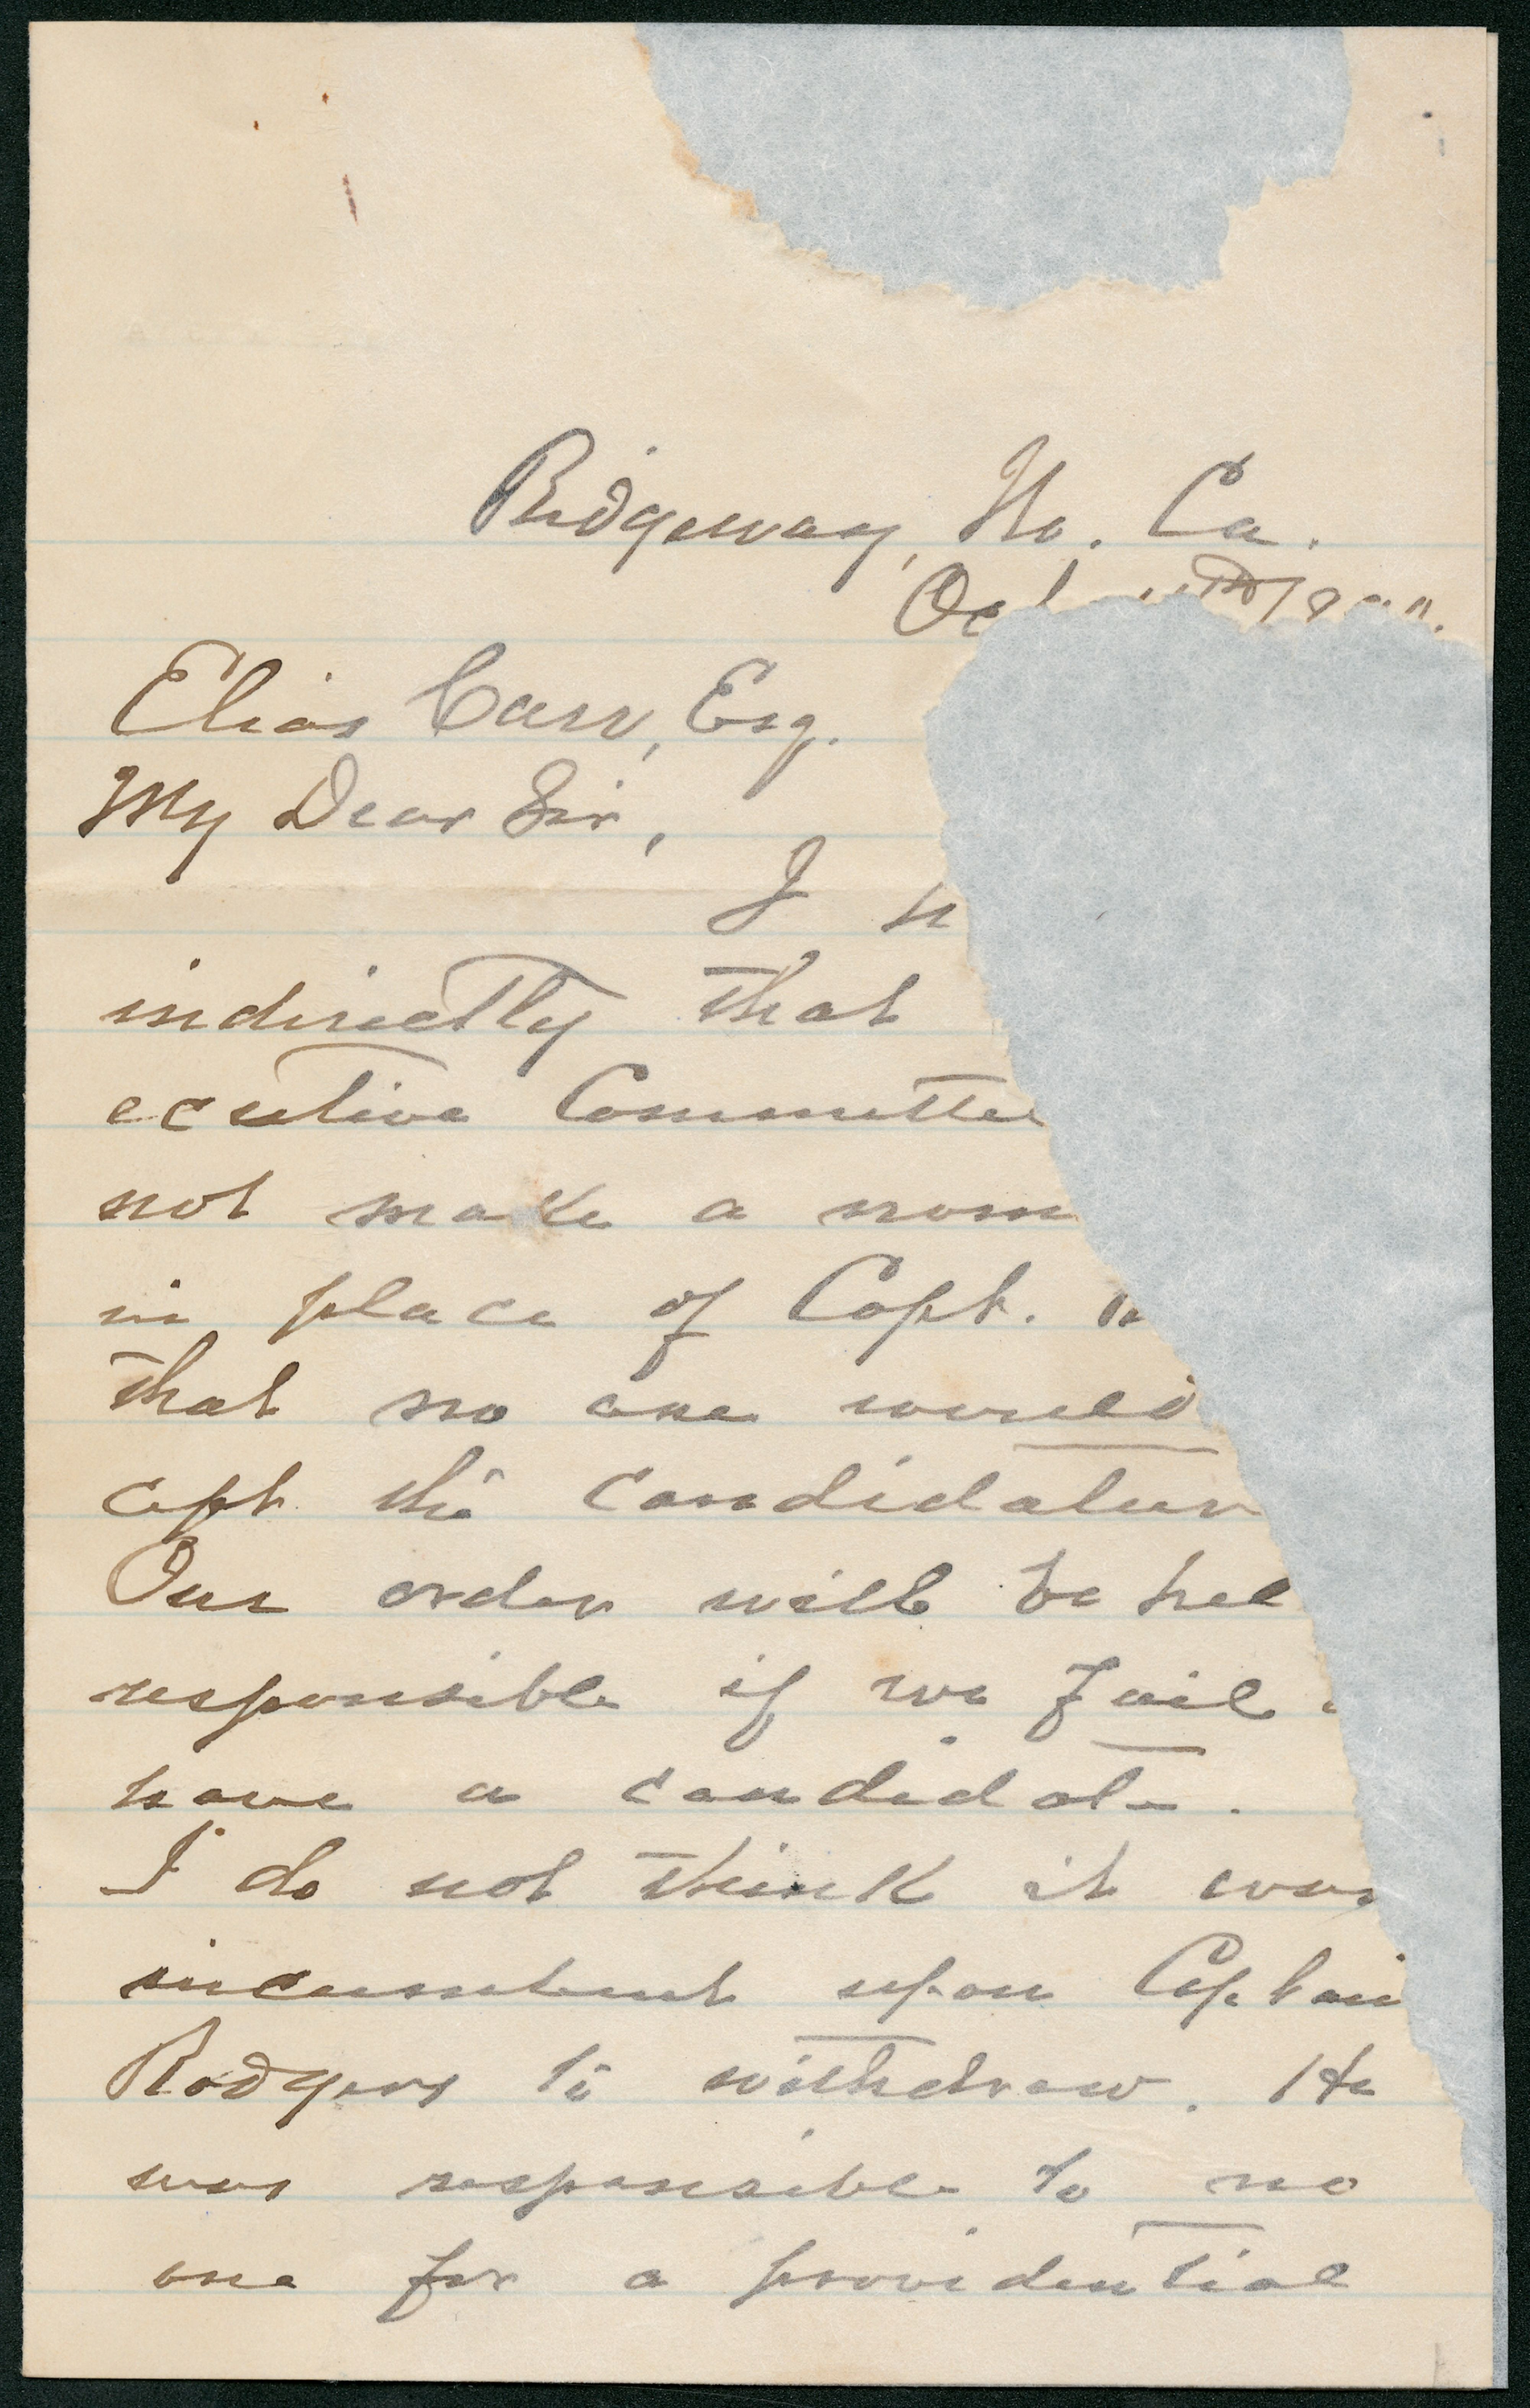 Ridgeway, No. Ca.
Elias Carr, Esq.
My Dear Sir,
I
indirectly that
ecutive Committee
not make a
in place of Capt.
that no one would
cept the
Our order will be
responsible if we fail
have a candidate.
I do not think it was
incumbent upon Captain
Rodgers to withdraw. He
was responsible to no
one for a providential